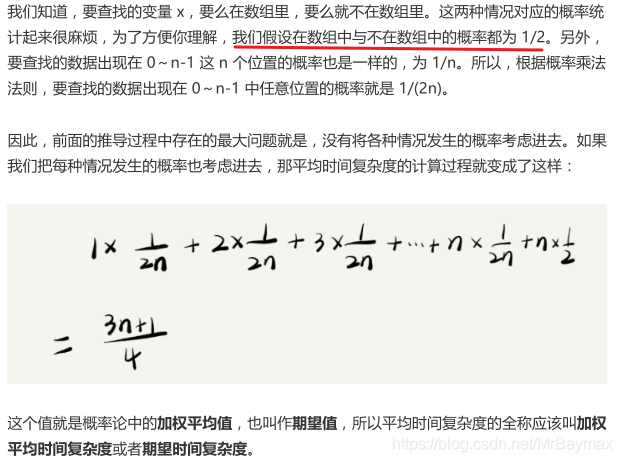 我们知道，要查找的变量 x，要么在数组里，要么就不在数组里。这两种情况对应的概率统
计起来很麻烦，为了方便你理解，我们假设在数组中与不在数组中的概率都为 1/2。另外，
要查找的数据出现在 0～n-1 这 n 个位置的概率也是一样的，为 1/n。所以，根据概率乘法
法则，要查找的数据出现在 0～n-1 中任意位置的概率就是 1/(2n)。
因此，前面的推导过程中存在的最大问题就是，没有将各种情况发生的概率考虑进去。如果
我们把每种情况发生的概率也考虑进去，那平均时间复杂度的计算过程就变成了这样：
1× 1/2n + 2×1/2n + 3×1/2n +···+ n × 1/2n + n×1/2
= 3n+1/4
这个值就是概率论中的加权平均值，也叫作期望值，所以平均时间复杂度的全称应该叫加权
平均时间复杂度或者期望时间复杂度。
https://blog.csdn.net/MrBaymax